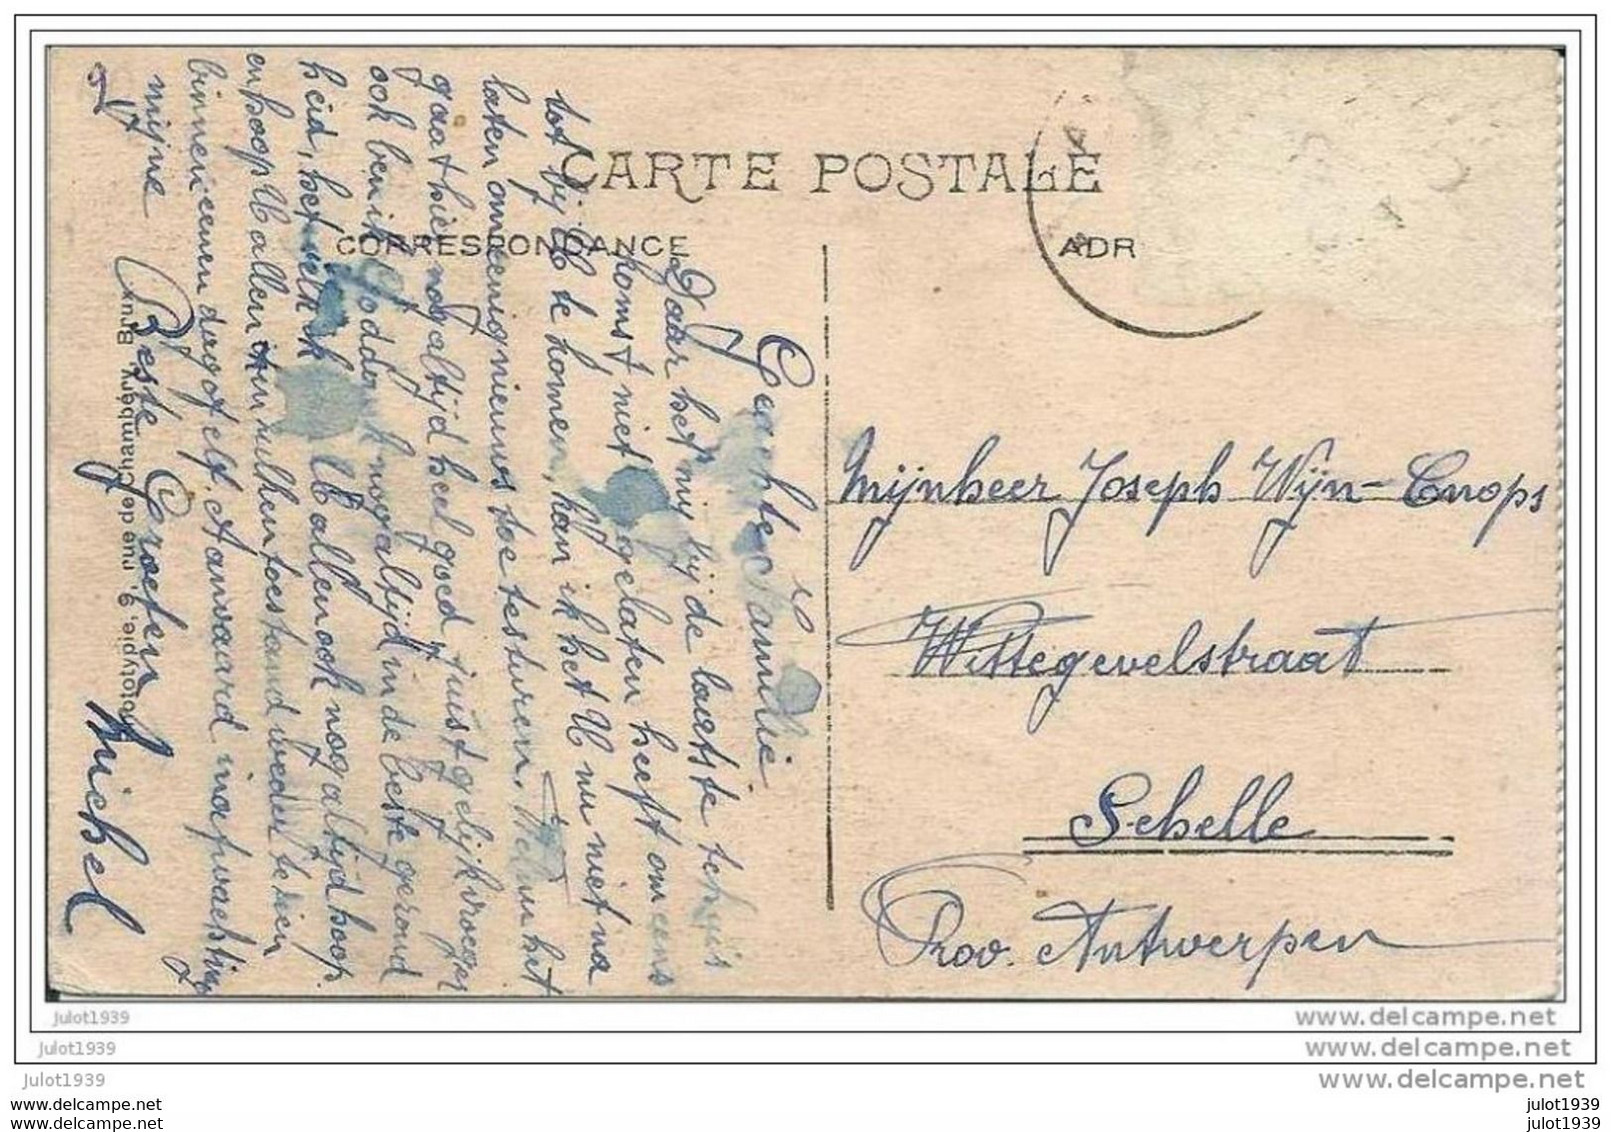 CARTE POSTALE
CORRESPONDANCE
ADR
Geachte Familie
Daar het mij bij de laatste tehuis
komst niet gelaten heeft om eens
tot bij U te komen, kan ik het U nu niet na
laten om eenig nieuws toe te sturen. Met het
gaat hier nogaltijd heel goed, juist gelijk vroeger
ook ben ik Goddank nogaltijd in de beste gezond
heid, het welk ik U allen ook nogaltijd hoop.
en hoop U allen in zulken toestand weder te zien
binnen eenen dag of elf. Aanvaard in afwachting
mijne Beste Groeten
Michel
Phototypie, 9, rue de Schaumbeek, Brux
Mijnheer Joseph Wijn-Cnops
Wittegevelstraat
Schelle
Prov. Antwerpen
julot1939
julot1939
julot1939
julot1939
julot1939
www.delcampe.net
www.delcampe.net
www.delcampe.net
julot1939
julot1939